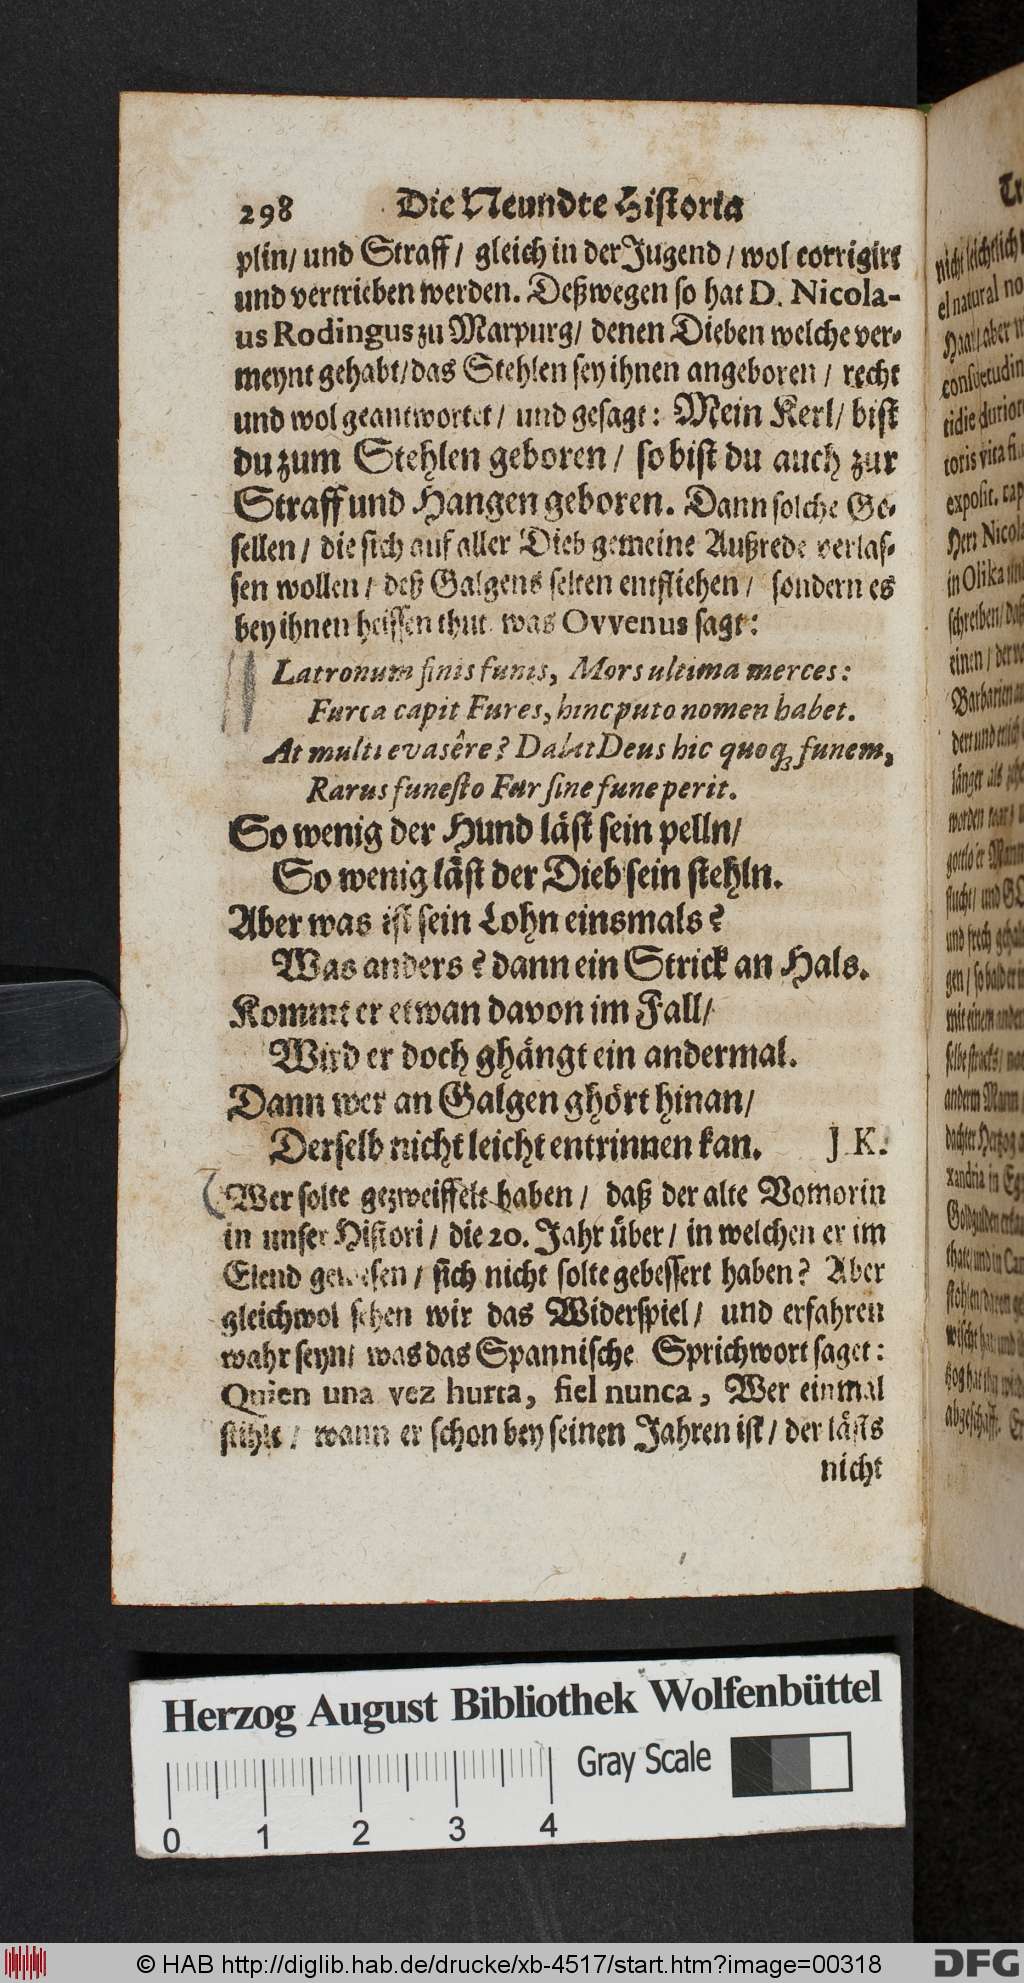 298 Die Neundte Historia
plin/ und Straff/ gleich in der Jugend/ wol corrigirt
und vertrieben werden. Deßwegen so hat D. Nicola-
us Rodingus zu Marpurg/ denen Dieben welche ver-
meynt gehabt/ das Stehlen sey ihnen angeboren/ recht
und wol geantwortet/ und gesagt: Mein Kerl/ bist
du zum Stehlen geboren/ so bist du auch zur
Straff und Hangen geboren. Dann solche Ge-
sellen/ die sich auf aller Dieb gemeine Außrede verlas-
sen wollen/ deß Galgens selten entfliehen/ sondern es
bey ihnen heissen thut was Ovvenus sagt:
Latronum finis funis, Mors ultima merces:
Furca capit Fures, hinc puto nomen habet.
At multi evasêre? Dabit Deus hic quoq; funem,
Rarus funesto Fur sine fune perit.
So wenig der Hund läst sein pelln/
So wenig läst der Dieb sein stehln.
Aber was ist sein Lohn einsmals?
Was anders? dann ein Strick an Hals.
Kommt er etwan davon im Fall/
Wird er doch ghängt ein andermal.
Dann wer an Galgen ghört hinan/
Derselb nicht leicht entrinnen kan. J. K.
Wer solte gezweiffelt haben/ daß der alte Vomorin
in unser Histori/ die 20. Jahr über/ in welchen er im
Elend gewesen/ sich nicht solte gebessert haben? Aber
gleichwol sehen wir das Widerspiel/ und erfahren
wahr seyn/ was das Spannische Sprichwort saget:
Quien una vez hurta, fiel nunca, Wer einmal
stihlt/ wann er schon bey seinen Jahren ist/ der lästs
nicht
Herzog August Bibliothek Wolfenbüttel
Gray Scale
0 1 2 3 4
© HAB http://diglib.hab.de/drucke/xb-4517/start.htm?image=00318
DFG